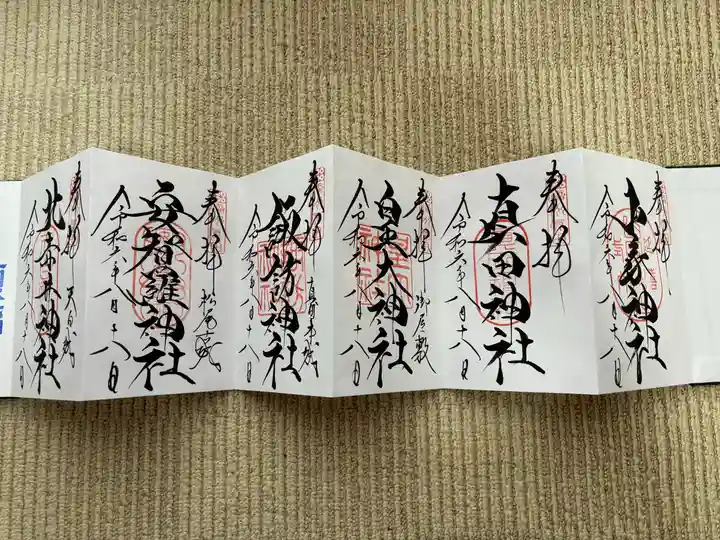 奉拝
小玉神社
令和六年八月十八日
奉拝
真田神社
令和六年八月十八日
奉拝
御屋敷
皇大神社
令和六年八月十八日
奉拝
真田本城
飯綱神社
令和六年八月十八日
奉拝
松尾城
安智羅神社
令和六年八月十八日
奉拝
天白城
北赤井神社
令和六年八月十八日